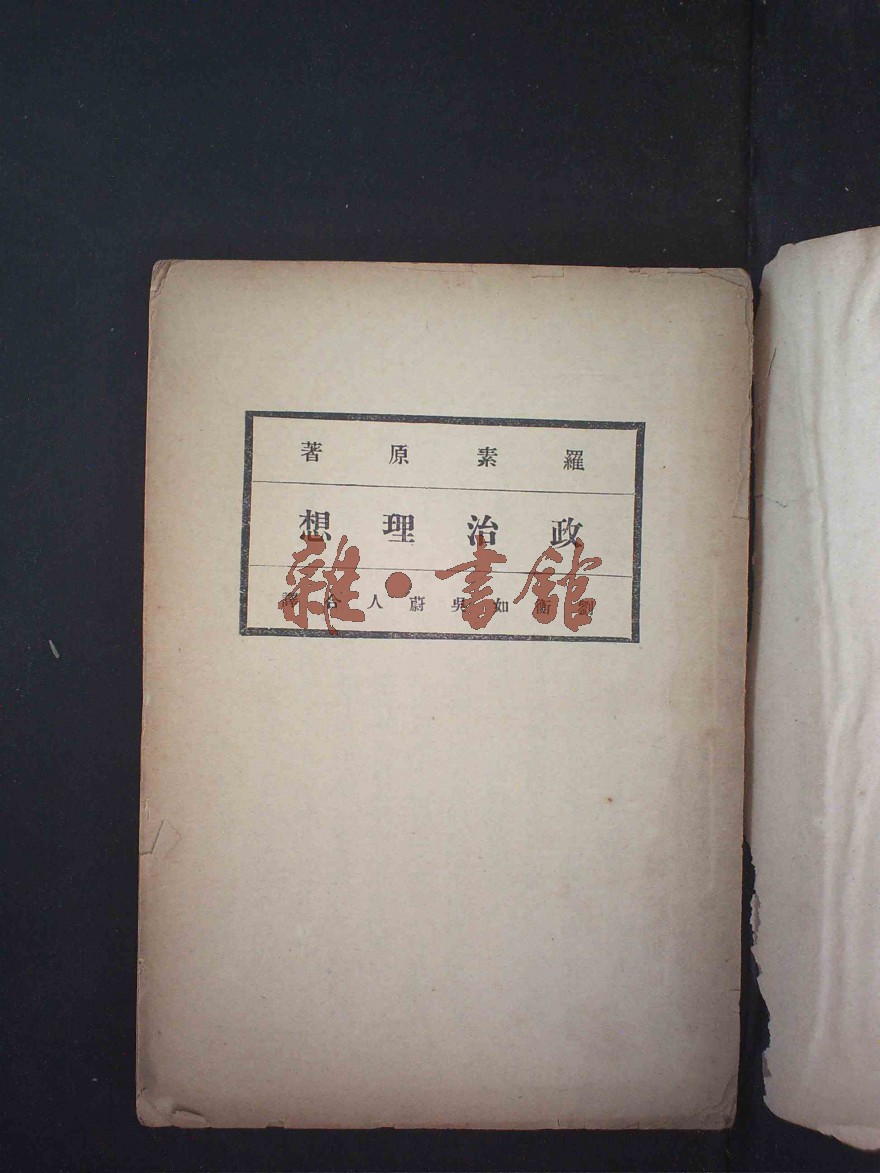 羅素原著
政治理想
劉衡如吳蔚人合譯
雜·書館